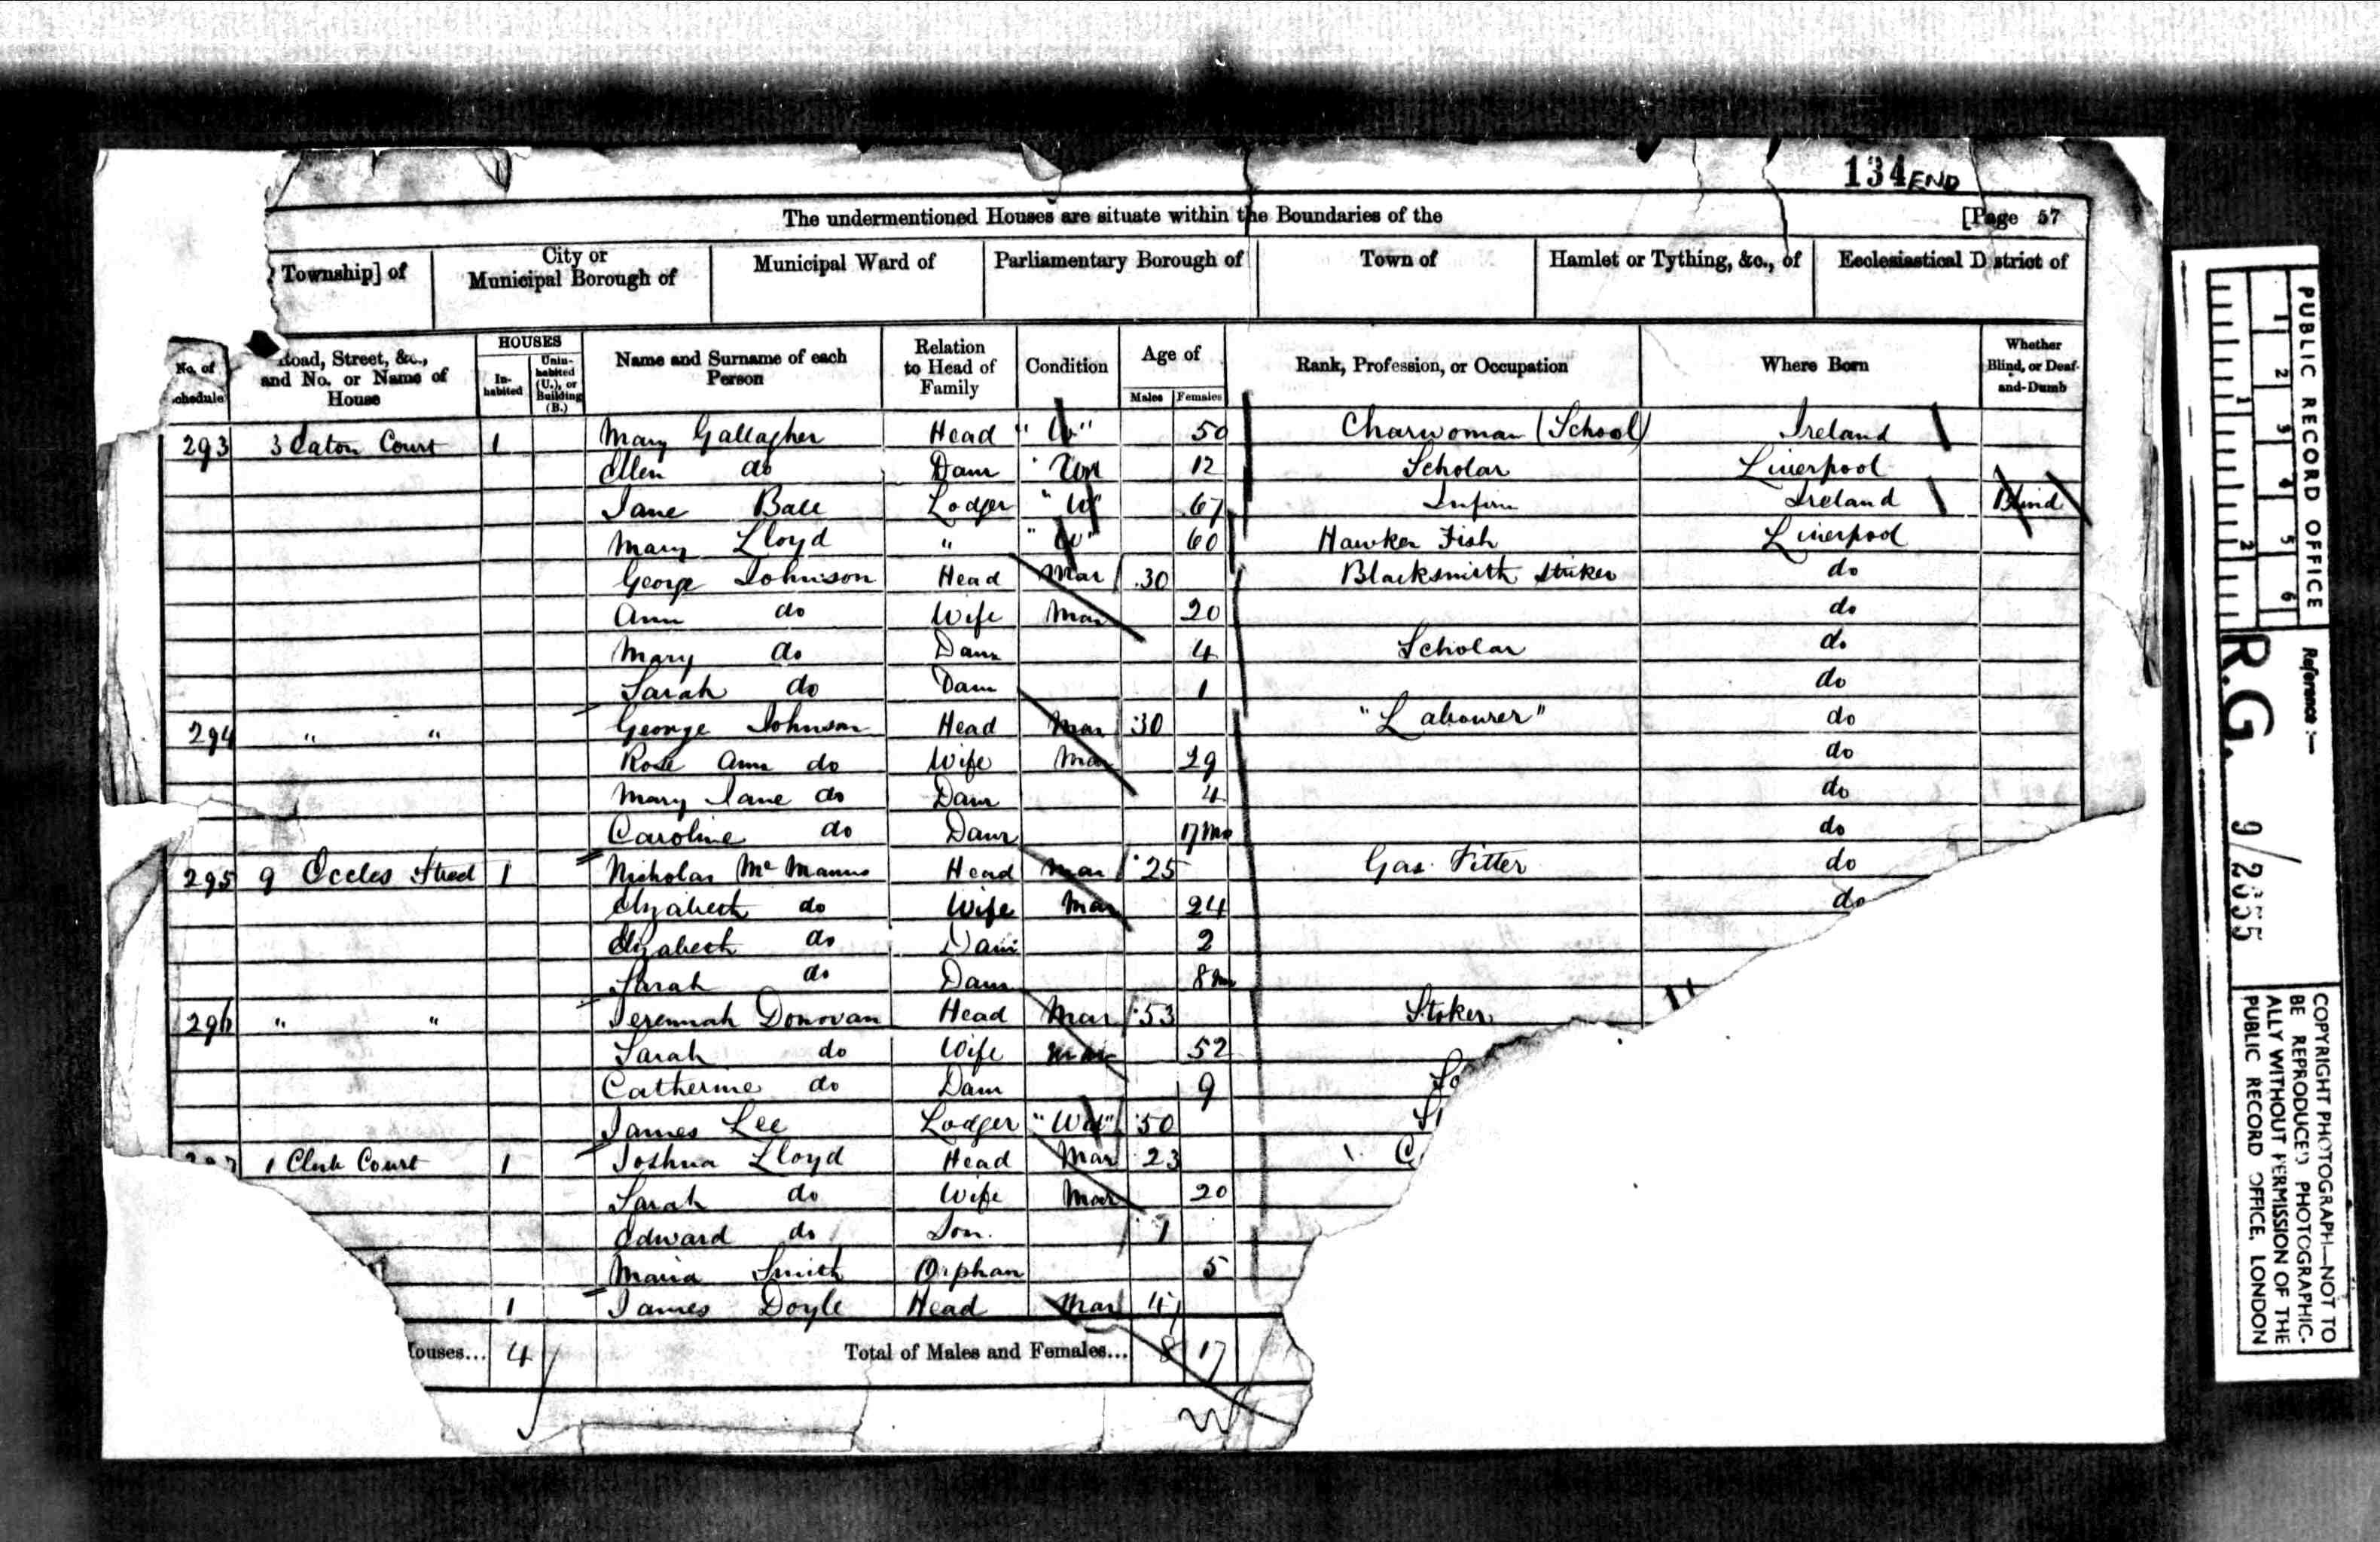 134 END
The undermentioned Houses are situate within the Boundaries of the [Page 57
Township] of City or Municipal Borough of Municipal Ward of Parliamentary Borough of Town of Hamlet or Tything, &c., of Ecclesiastical District of
No. of Schedule Road, Street, &c., and No. or Name of House HOUSES Inhabited Uninhabited (U.), or Building (B.) Name and Surname of each Person Relation to Head of Family Condition Age of Males Females Rank, Profession, or Occupation Where Born Whether Blind, or Deaf-and-Dumb
293 3 Eaton Court 1 Mary Gallagher Head "W" 50 Charwoman (School) Ireland
Ellen do Daur Un 12 Scholar Liverpool
Jane Ball Lodger "W" 67 Infirm Ireland Blind
Mary Lloyd " "W" 60 Hawker Fish Liverpool
George Johnson Head Mar 30 Blacksmith Striker do
Ann do Wife Mar 20 do
Mary do Daur 4 Scholar do
Sarah do Daur 1 do
294 " " George Johnson Head Mar 30 "Labourer" do
Rose Ann do Wife Mar 29 do
Mary Jane do Daur 4 do
Caroline do Daur 17 Mo do
295 9 Eccles Street 1 Nicholas Mc Manus Head Mar 25 Gas Fitter do
Elizabeth do Wife Mar 24 do
Elizabeth do Daur 2
Sarah do Daur 8 m
296 " " Jeremiah Donovan Head Mar 53 Stoker
Sarah do Wife Mar 52
Catherine do Daur 9
James Lee Lodger "Wd" 50
1 Club Court 1 Joshua Lloyd Head Mar 23
Sarah do Wife Mar 20
Edward do Son 1
Maria Smith Orphan 5
1 James Doyle Head Mar
Houses... 4 Total of Males and Females... 8 17
PUBLIC RECORD OFFICE
1 2 3 4 5 6
1 2
Reference :—
R.G. 9/2655
COPYRIGHT PHOTOGRAPH—NOT TO
BE REPRODUCED PHOTOGRAPHIC-
ALLY WITHOUT PERMISSION OF THE
PUBLIC RECORD OFFICE, LONDON